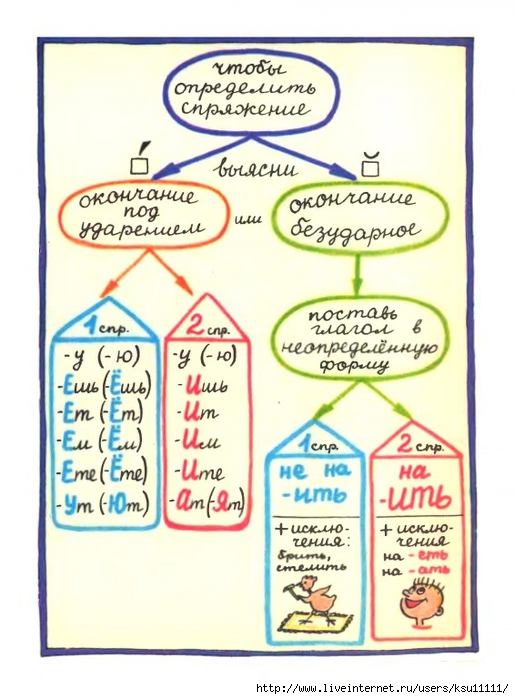 чтобы
определить
спряжение
выясни
окончание
под
ударением
или
окончание
безударное
поставь
глагол в
неопределённую
форму
1 спр.
-у (-ю)
-Ешь (-Ёшь)
-Ет (-Ёт)
-Ем (-Ём)
-Ете (-Ёте)
-Ут (-Ют)
2 спр.
-у (-ю)
-Ишь
-Ит
-Им
-Ите
-Ат (-Ят)
1 спр.
не на
-ить
+ исклю-
чения:
брить,
стелить
2 спр.
на
-ить
+ исклю-
чения
на -еть
на -ать
http://www.liveinternet.ru/users/ksu11111/